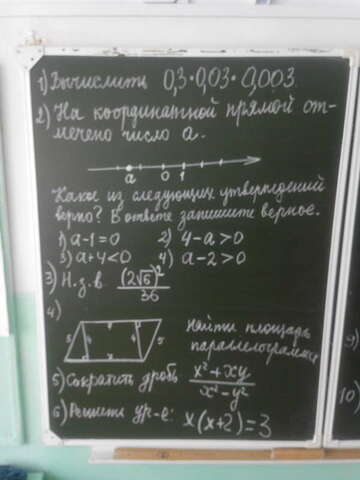 1) Вычислить 0,3·0,03·0,003.
2) На координатной прямой от-
мечено число а.
a 0 1
Какое из следующих утверждений
верно? В ответе запишите верное.
1) a-1=0 2) 4-a>0
3) a+4<0 4) a-2>0
3) Н.з.в. (2√6)²/36
4)
5 4 4 5
Найти площадь
параллелограмма
5) Сократить дробь x²+xy/x²-y²
6) Решить ур-е: x(x+2)=3
9)
10)